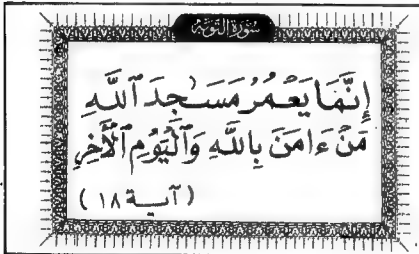 سُورَةُ التَّوْبَة
إِنَّمَا يَعْمُرُ مَسَٰجِدَ ٱللَّهِ
مَنْ ءَامَنَ بِٱللَّهِ وَٱلْيَوْمِ ٱلْـَٔاخِرِ
(آيـــة ١٨)